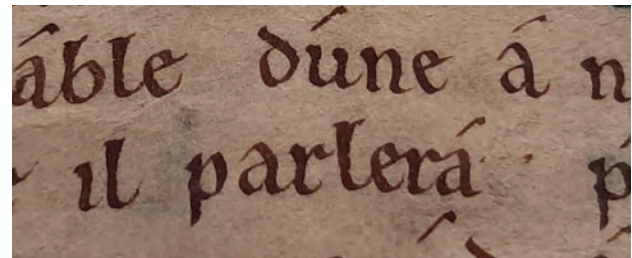 áble dúne á n
il parlerá p